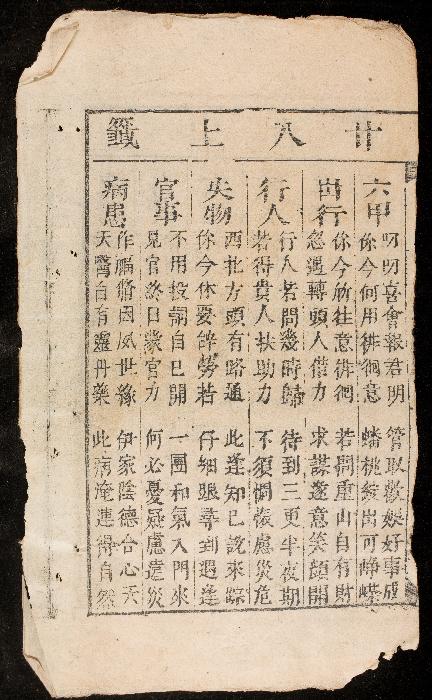 廿八上籤
六甲
叨叨喜會報君明 管取歡娛好事成
你今何用徘徊意 蟠桃綻出可崢嶸
出行
你今所往意徘徊 若問重山自有財
忽遇轉頭人借力 求謀遂意笑顏開
行人
行人若問幾時歸 待到三更半夜期
若得貴人扶助力 不須惆悵慮災危
失物
西北方頭有路通 此逢知己說來踪
你今休要辞勞若 仔細跟尋到遇逢
官事
不用投詞自己開 一團和氣入門來
見官終日蒙官力 何必憂疑慮遠災
病患
作福脩因风世緣 伊家陰德合心天
天醫自有靈丹藥 此病淹連得自然